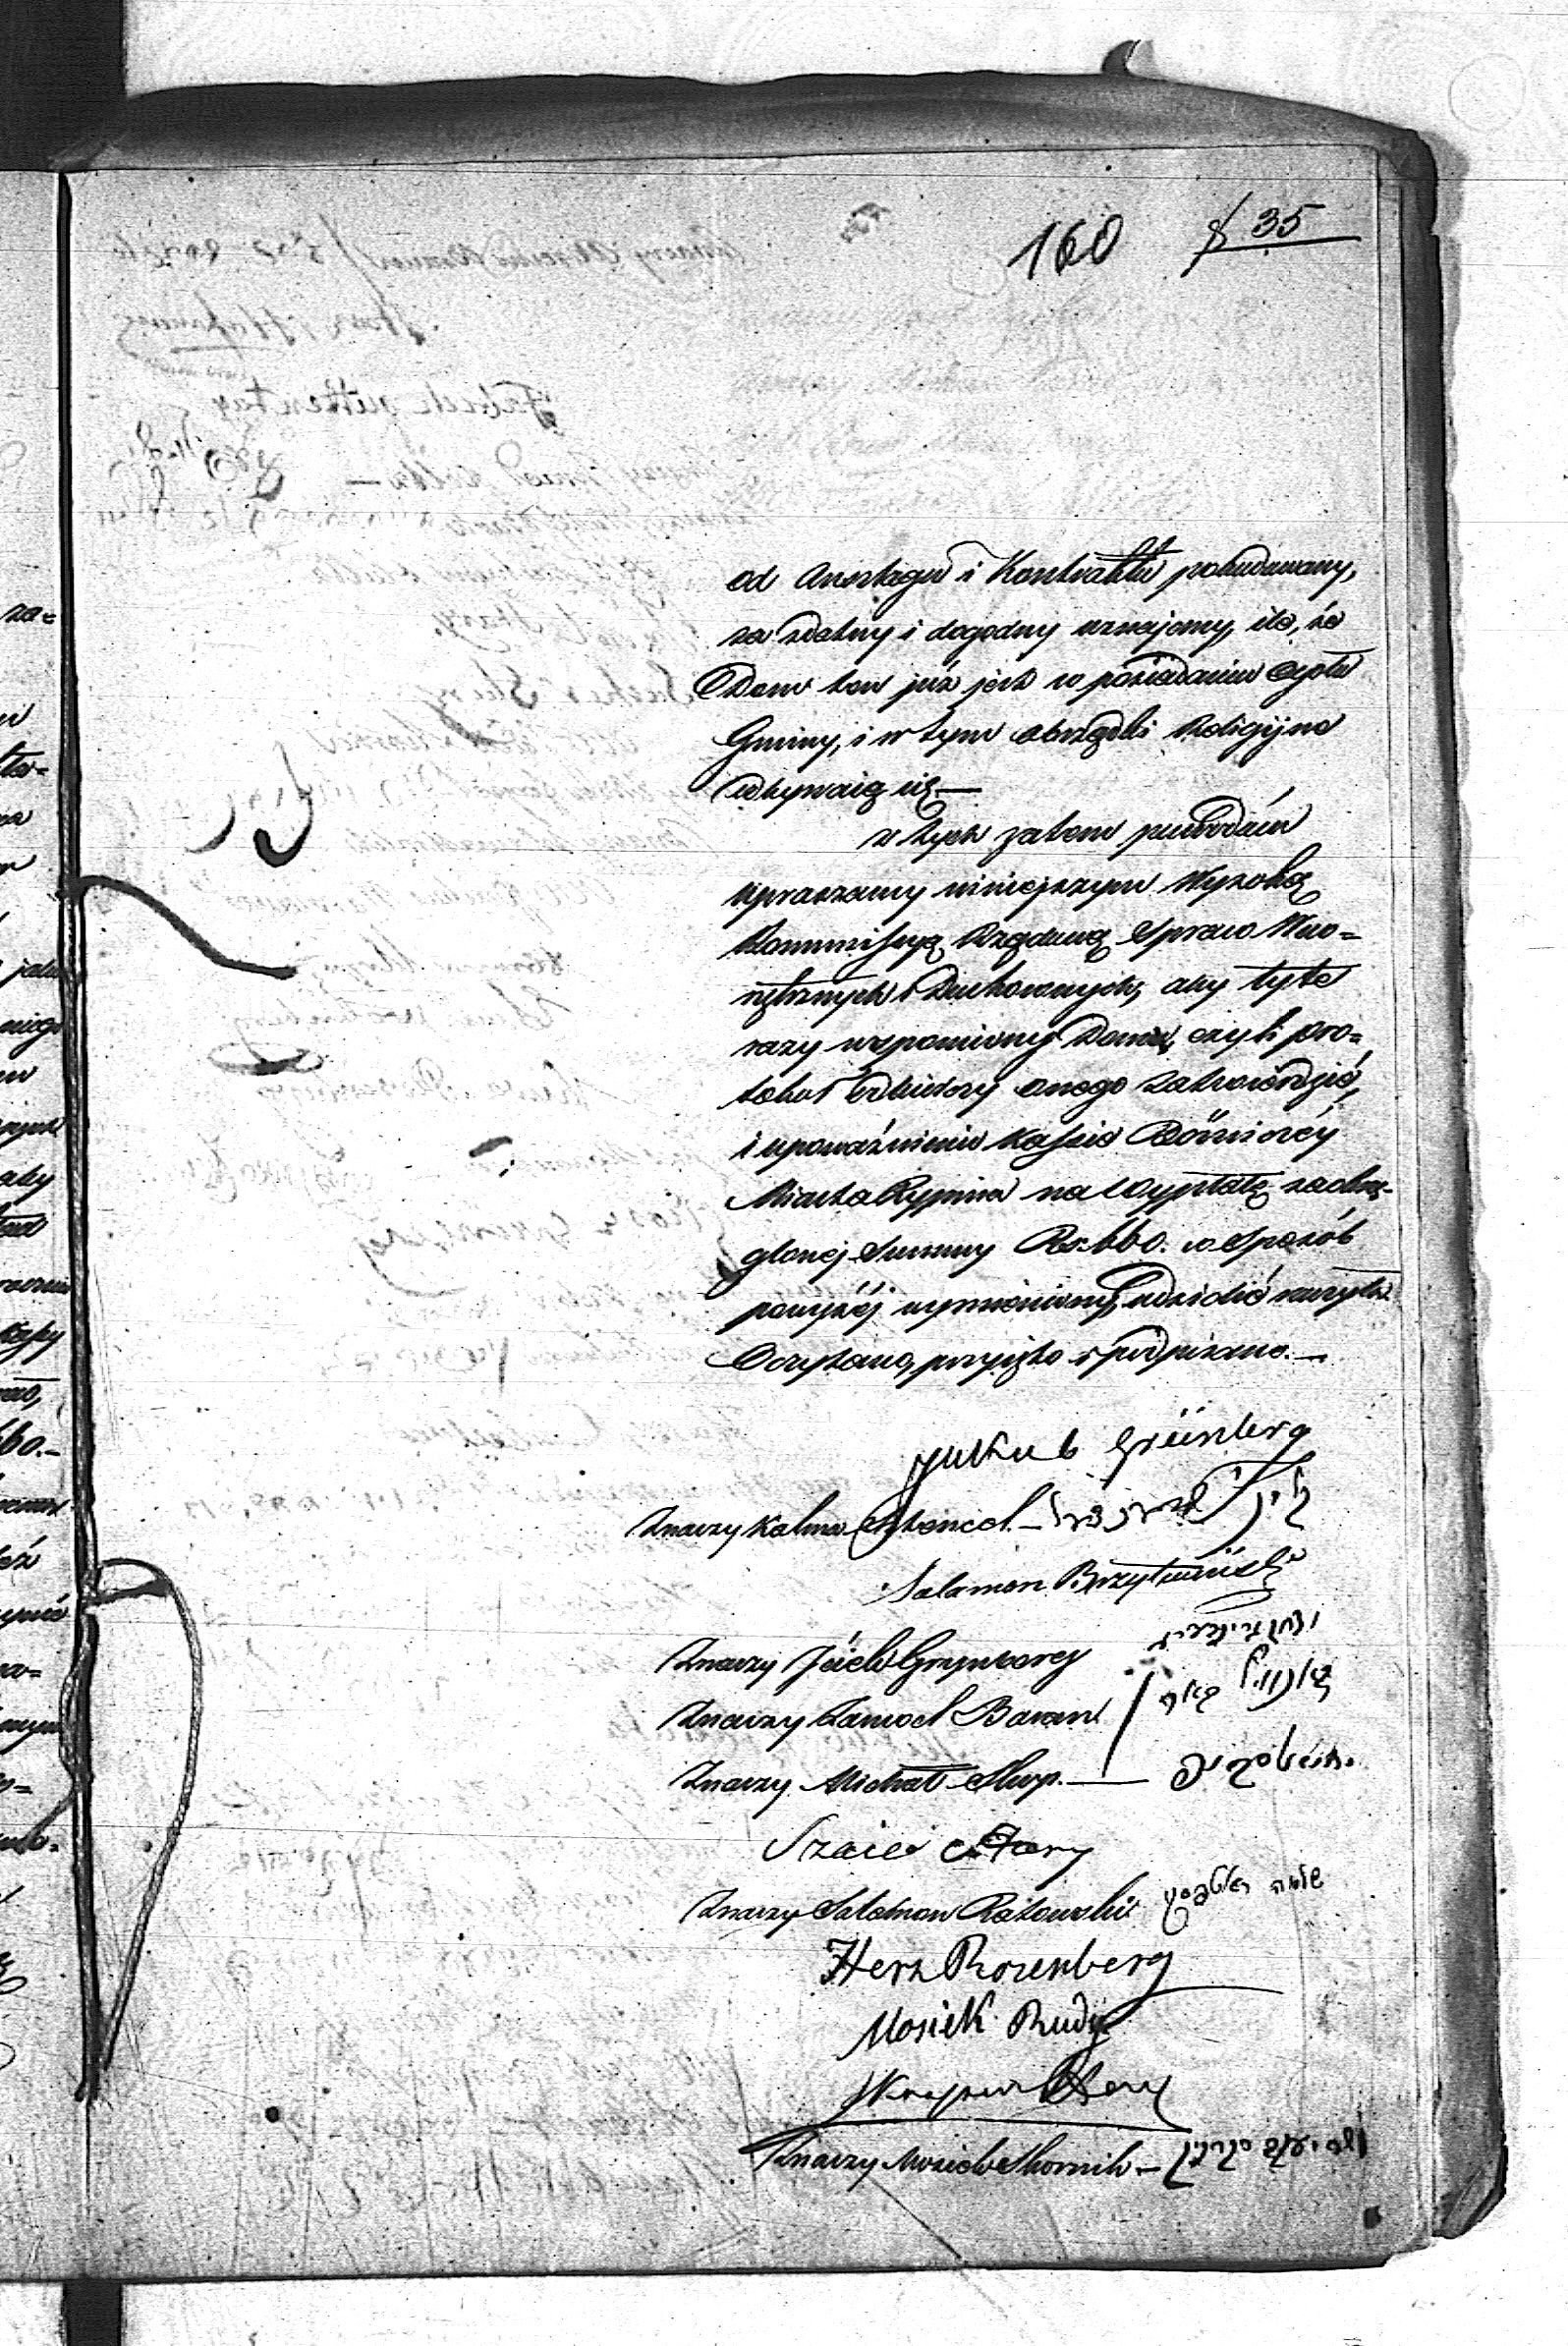 160 35
od Anszlagu i Kontraktu pobudowany,
za zdatny i dogodny uznajemy, ile, że
Dom ten już jest w posiadaniu ogółu
Gminy, i w tym obrządki Religijne
odbywaią się —
z tych zatem powodów
upraszamy niniejszym Wysoką
Kommissyę Rządową Spraw Wew=
nętrznych i Duchownych, aby tyle
razy wspomniony Dom, czyli pro=
tokuł odbiorczy onego zatwierdzić,
i upoważnienie Kassie Bóżniczéy
Miasta Rypina na wypłatę zacią-
głonej Summy Rs. 660. w sposób
powyżéj wymieniony udzielić raczyła.
Oczytano, przyięto i podpisano. —
Jakub Grünberg
Znaczy Kalma
Salamon
Znaczy Josek Grynberg
Znaczy Samoel Baran
Znaczy Michał Słup. —
Szaie Stary
Znaczy Salamon Rażowski שלמה
Herz Rozenberg
Mosiek Rudy
Stary
Znaczy Mosiek Skornik —